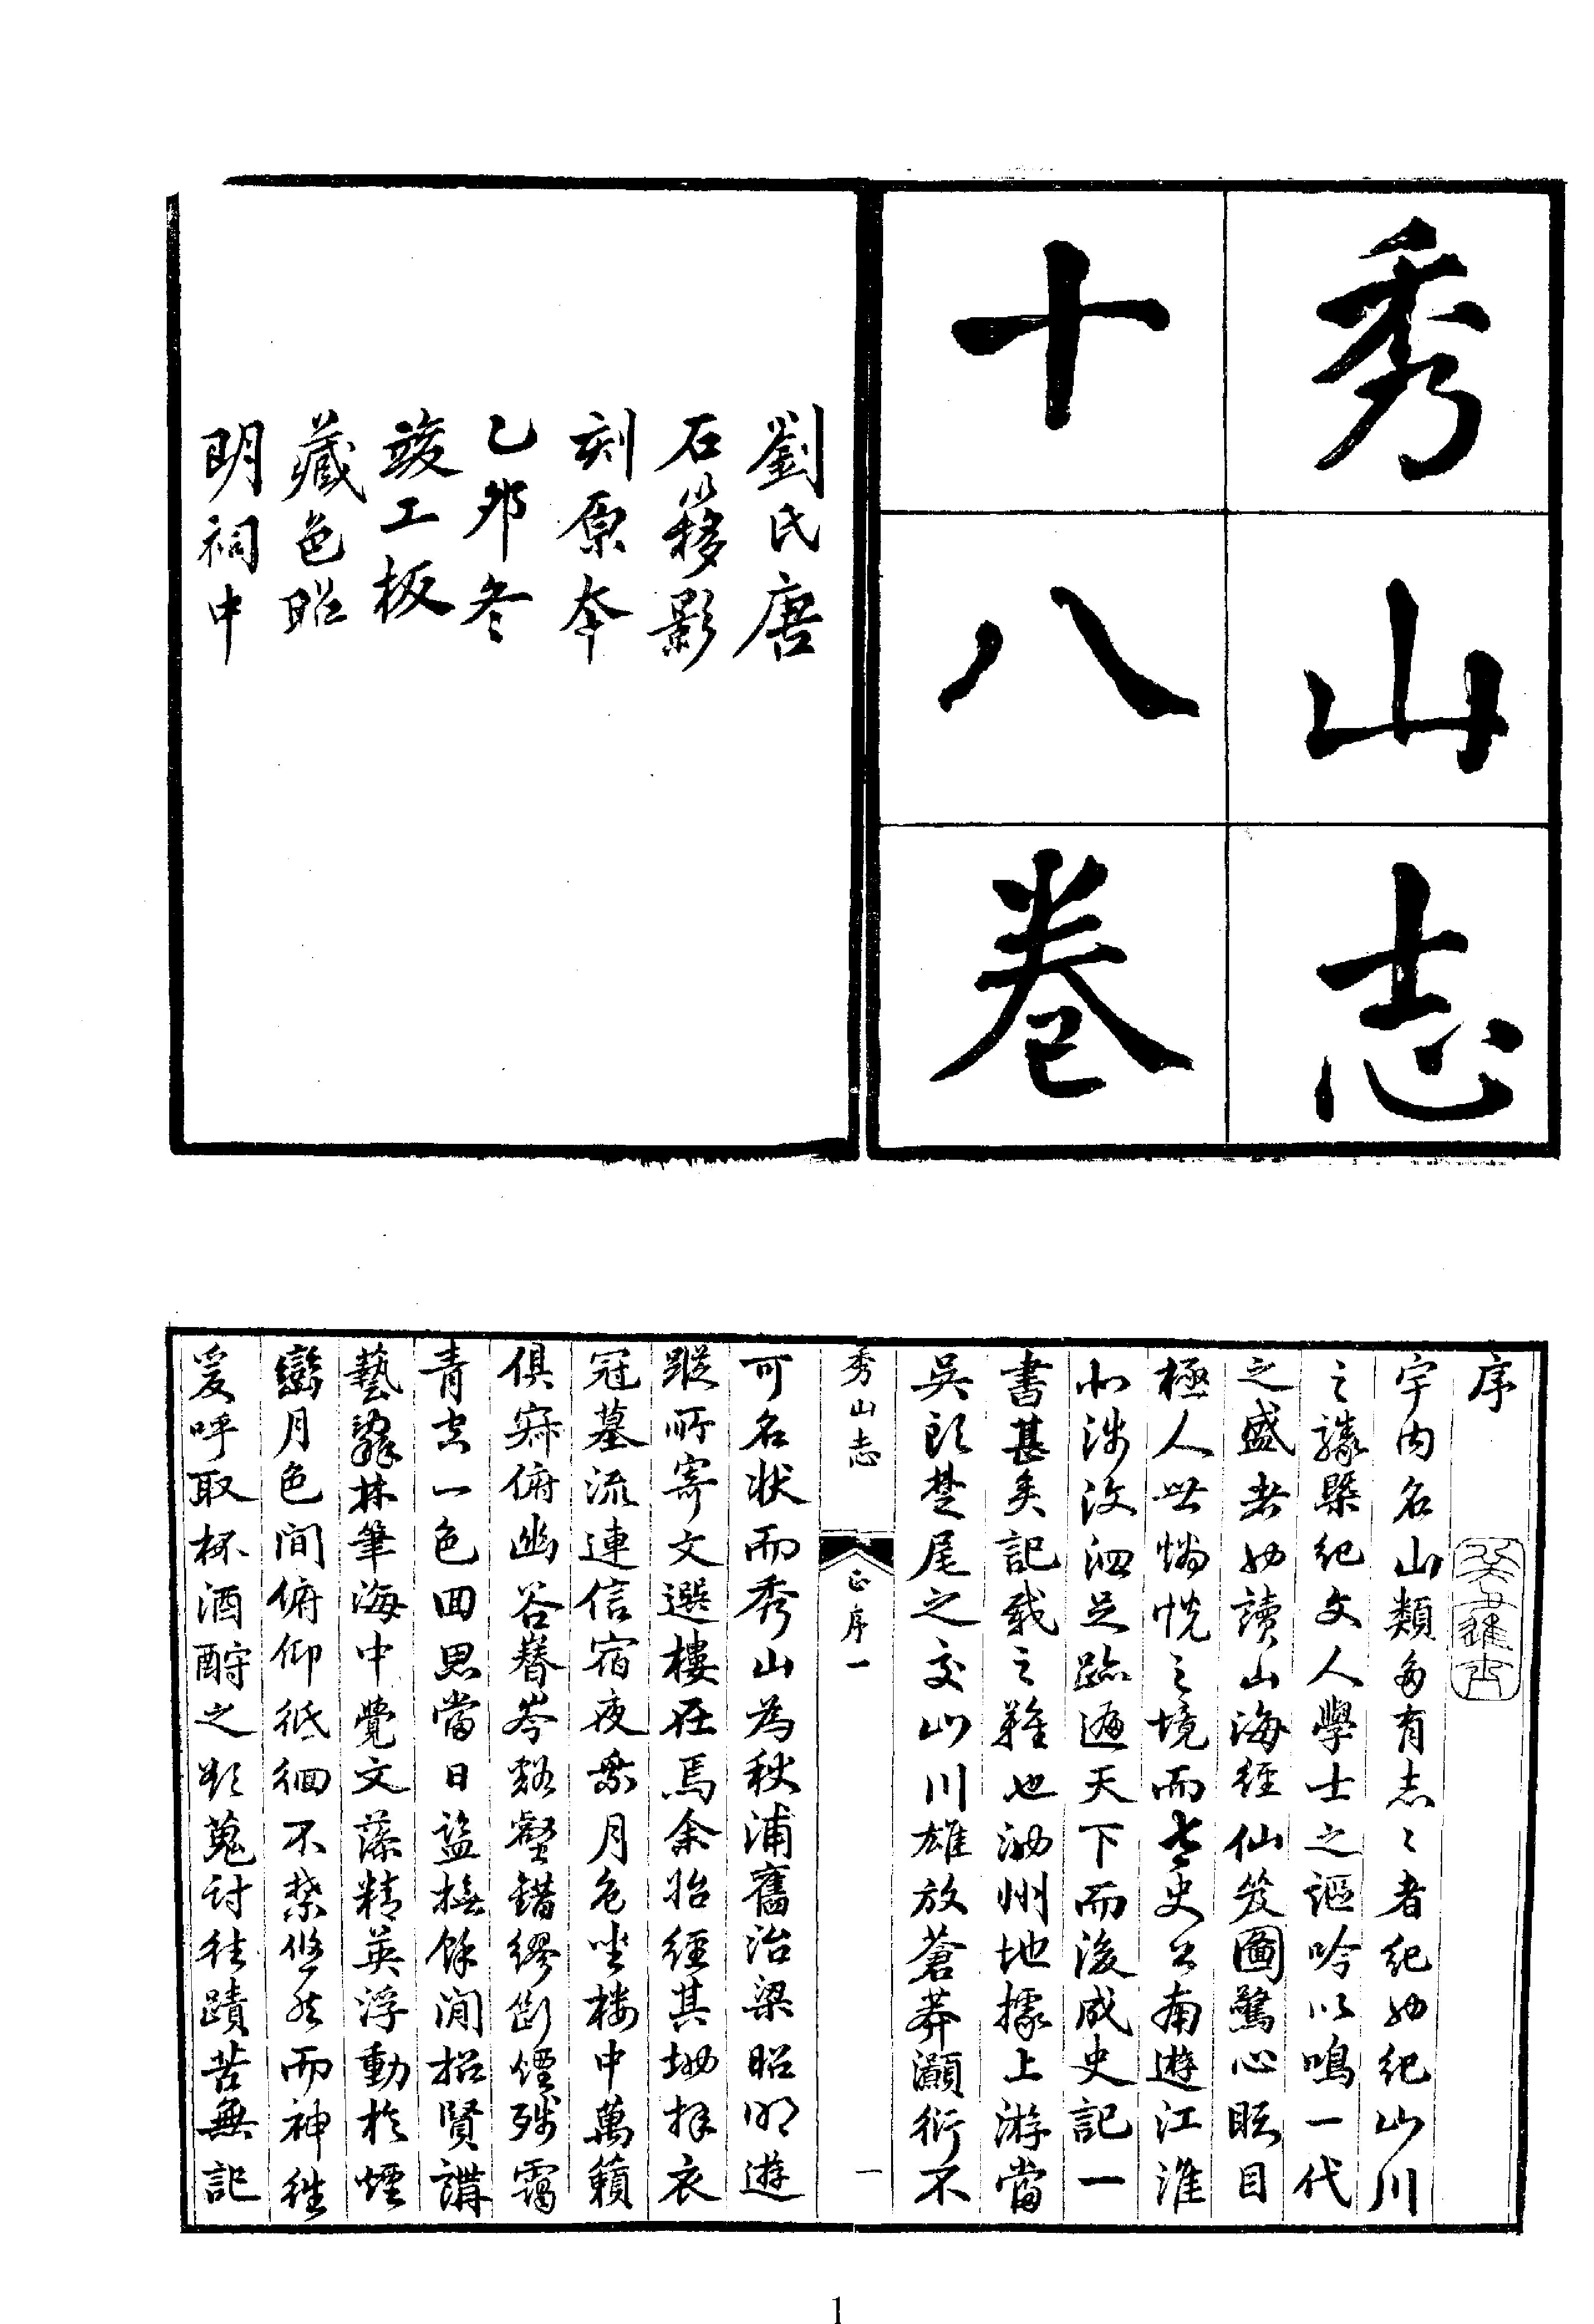 秀山志
十八卷
劉氏唐
石簃影
刻原本
乙卯冬
竣工板
藏邑昭
明祠中
序
宇内名山類多有志〻者紀也紀山川
之謙槩紀文人學士之謳吟以鳴一代
之盛者也讀山海經仙笈圖驚心眩目
極人世惝恍之境而太史公南遊江淮
北涉汶泗足跡遍天下而後成史記一
書甚矣記載之難也池州地據上游當
吳頭楚尾之交山川雄放蒼莽灝衍不
秀山志
序一
一
可名状而秀山為秋浦舊治梁昭明遊
蹤所寄文選樓在焉余始經其地拜衣
冠墓流連信宿夜乘月色坐楼中萬籟
俱寂俯幽谷攀岑谿壑錯繆斷煙殘靄
青空一色回思當日監撫餘閒招賢講
藝辭林筆海中覺文藻精英浮動於煙
巒月色間俯仰低徊不禁悠然而神往
爰呼取杯酒酹之欲蒐討往蹟苦無記
1